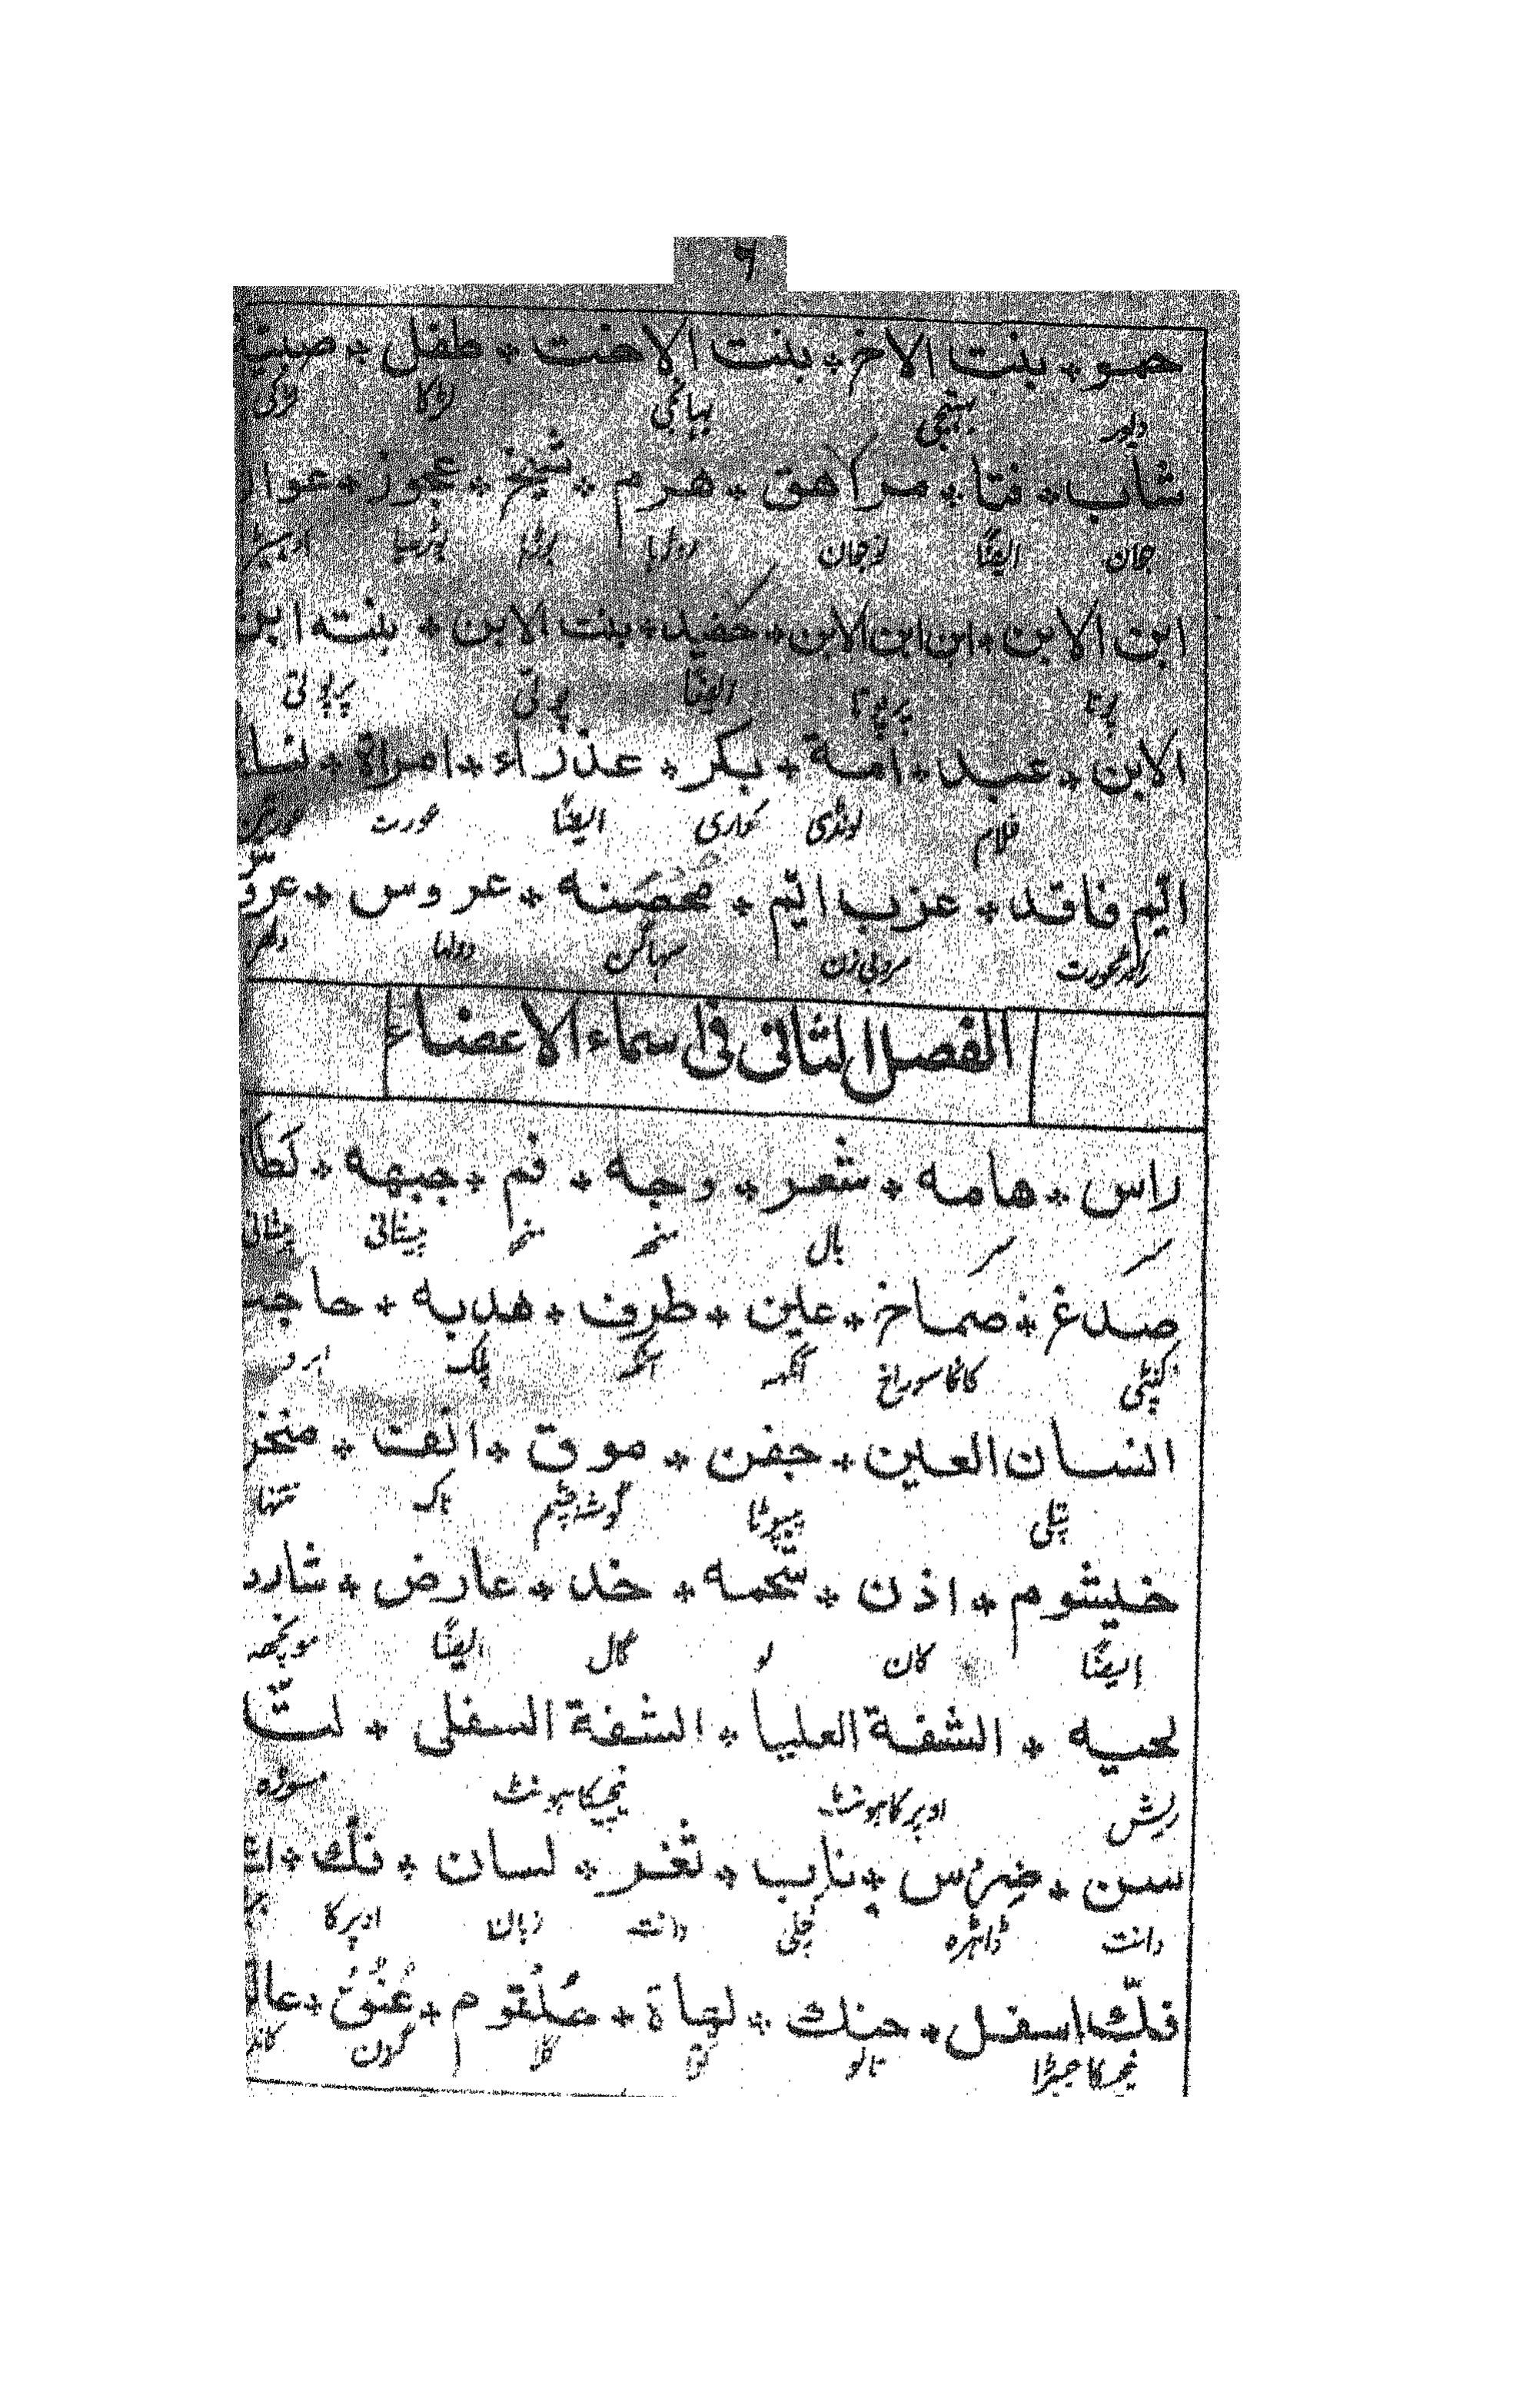 ۶
حمو ٭ بنت الاخ ٭ بنت الاخت ٭ طفل ٭
دیور بھتیجی بھانجی لڑکا لڑکی
شاب ٭ فتا ٭ مراهق ٭ هرم ٭ شیخ ٭ عجوز ٭
جوان ایضًا نوجوان بوڑھا بوڑھیا
ابن الابن ٭ ابن ابن الابن ٭ حفید ٭ بنت الابن ٭ بنته ابن
پوتا پرپوتا ایضًا پوتی پرپوتی
الابن ٭ عبد ٭ امة ٭ بکر ٭ عذراء ٭ امراة ٭ نساء
غلام لونڈی کواری ایضًا عورت عورتیں
ایّم فاقد ٭ عزب ایّم ٭ محصَنه ٭ عروس ٭
رانڈ عورت مرد بی زن سہاگن دولہا دلھن
الفصل الثانی فی اسماء الاعضاء
راس ٭ هامه ٭ شعر ٭ وجه ٭ فم ٭ جبهه ٭
سر سر بال منھ منھ پیشانی پیشانی
صدغ ٭ صماخ ٭ عین ٭ طرف ٭ هدبه ٭ حاجب
کنپٹی کانکا سوراخ آنکھہ آنکھ پلک ابرو
انسان العین ٭ جفن ٭ موق ٭ انف ٭ منخر
پتلی پیپوٹا گوشہ چشم ناک نتھنا
خیشوم ٭ اذن ٭ شحمه ٭ خد ٭ عارض ٭ شارب
ایضًا کان لو گال ایضًا مونچھہ
لحیه ٭ الشفة العلیا ٭ الشفة السفلی ٭
ریش اوپر کا ہونٹ نیچیکا ہونٹ مسوڑہ
سن ٭ ضرس ٭ ناب ٭ ثغر ٭ لسان ٭ فك ٭
دانت ڈاڑہ کچلی دانت زبان اوپر کا
فكّ اسفل ٭ حنك ٭ لهاة ٭ حلقوم ٭ عُنُق ٭
نیچیکا جبڑا تالو کوّا گلا گردن